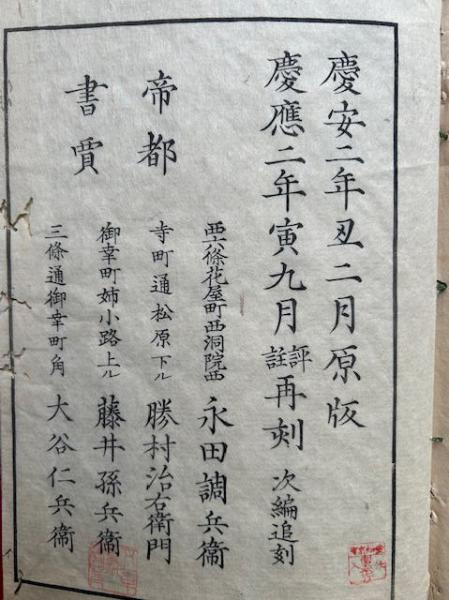 慶安二年丑二月原版
慶應二年寅九月評註再刻 次編追刻
帝都
書賈
西六條花屋町西洞院西 永田調兵衞
寺町通松原下ル 勝村治右衞門
御幸町姉小路上ル 藤井孫兵衞
三條通御幸町角 大谷仁兵衞